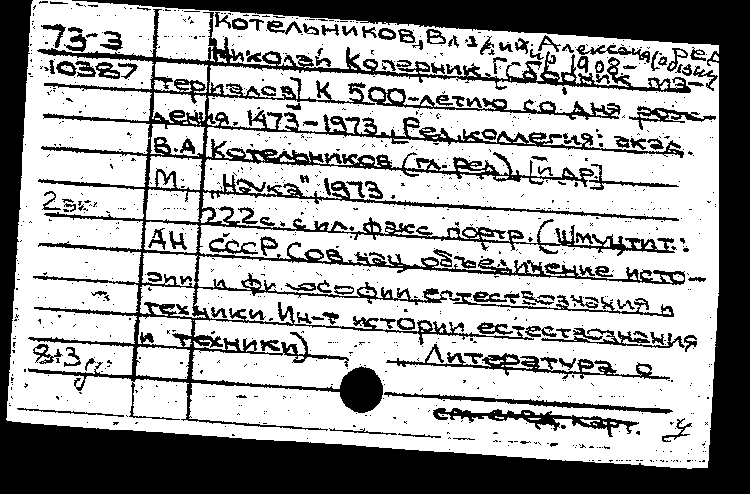 Котельников, Владимир Александрович, ред.
73-3
1908-
Николай Коперник. [Сборник ма-
10387
териалов] К 500-летию со дня рож-
дения. 1473-1973., Ред. коллегия: акад.
В.А. Котельников (гл. ред), [и др]
М., "Наука", 1973.
2 эк.
222с. с ил., факс. портр. (Шмуцтит.:
АН СССР. Сов. нац. объединение исто-
рии и философии естествознания и
техники. Ин-т истории естествознания
и техники)
Литература о
8+3
см. след. карт.